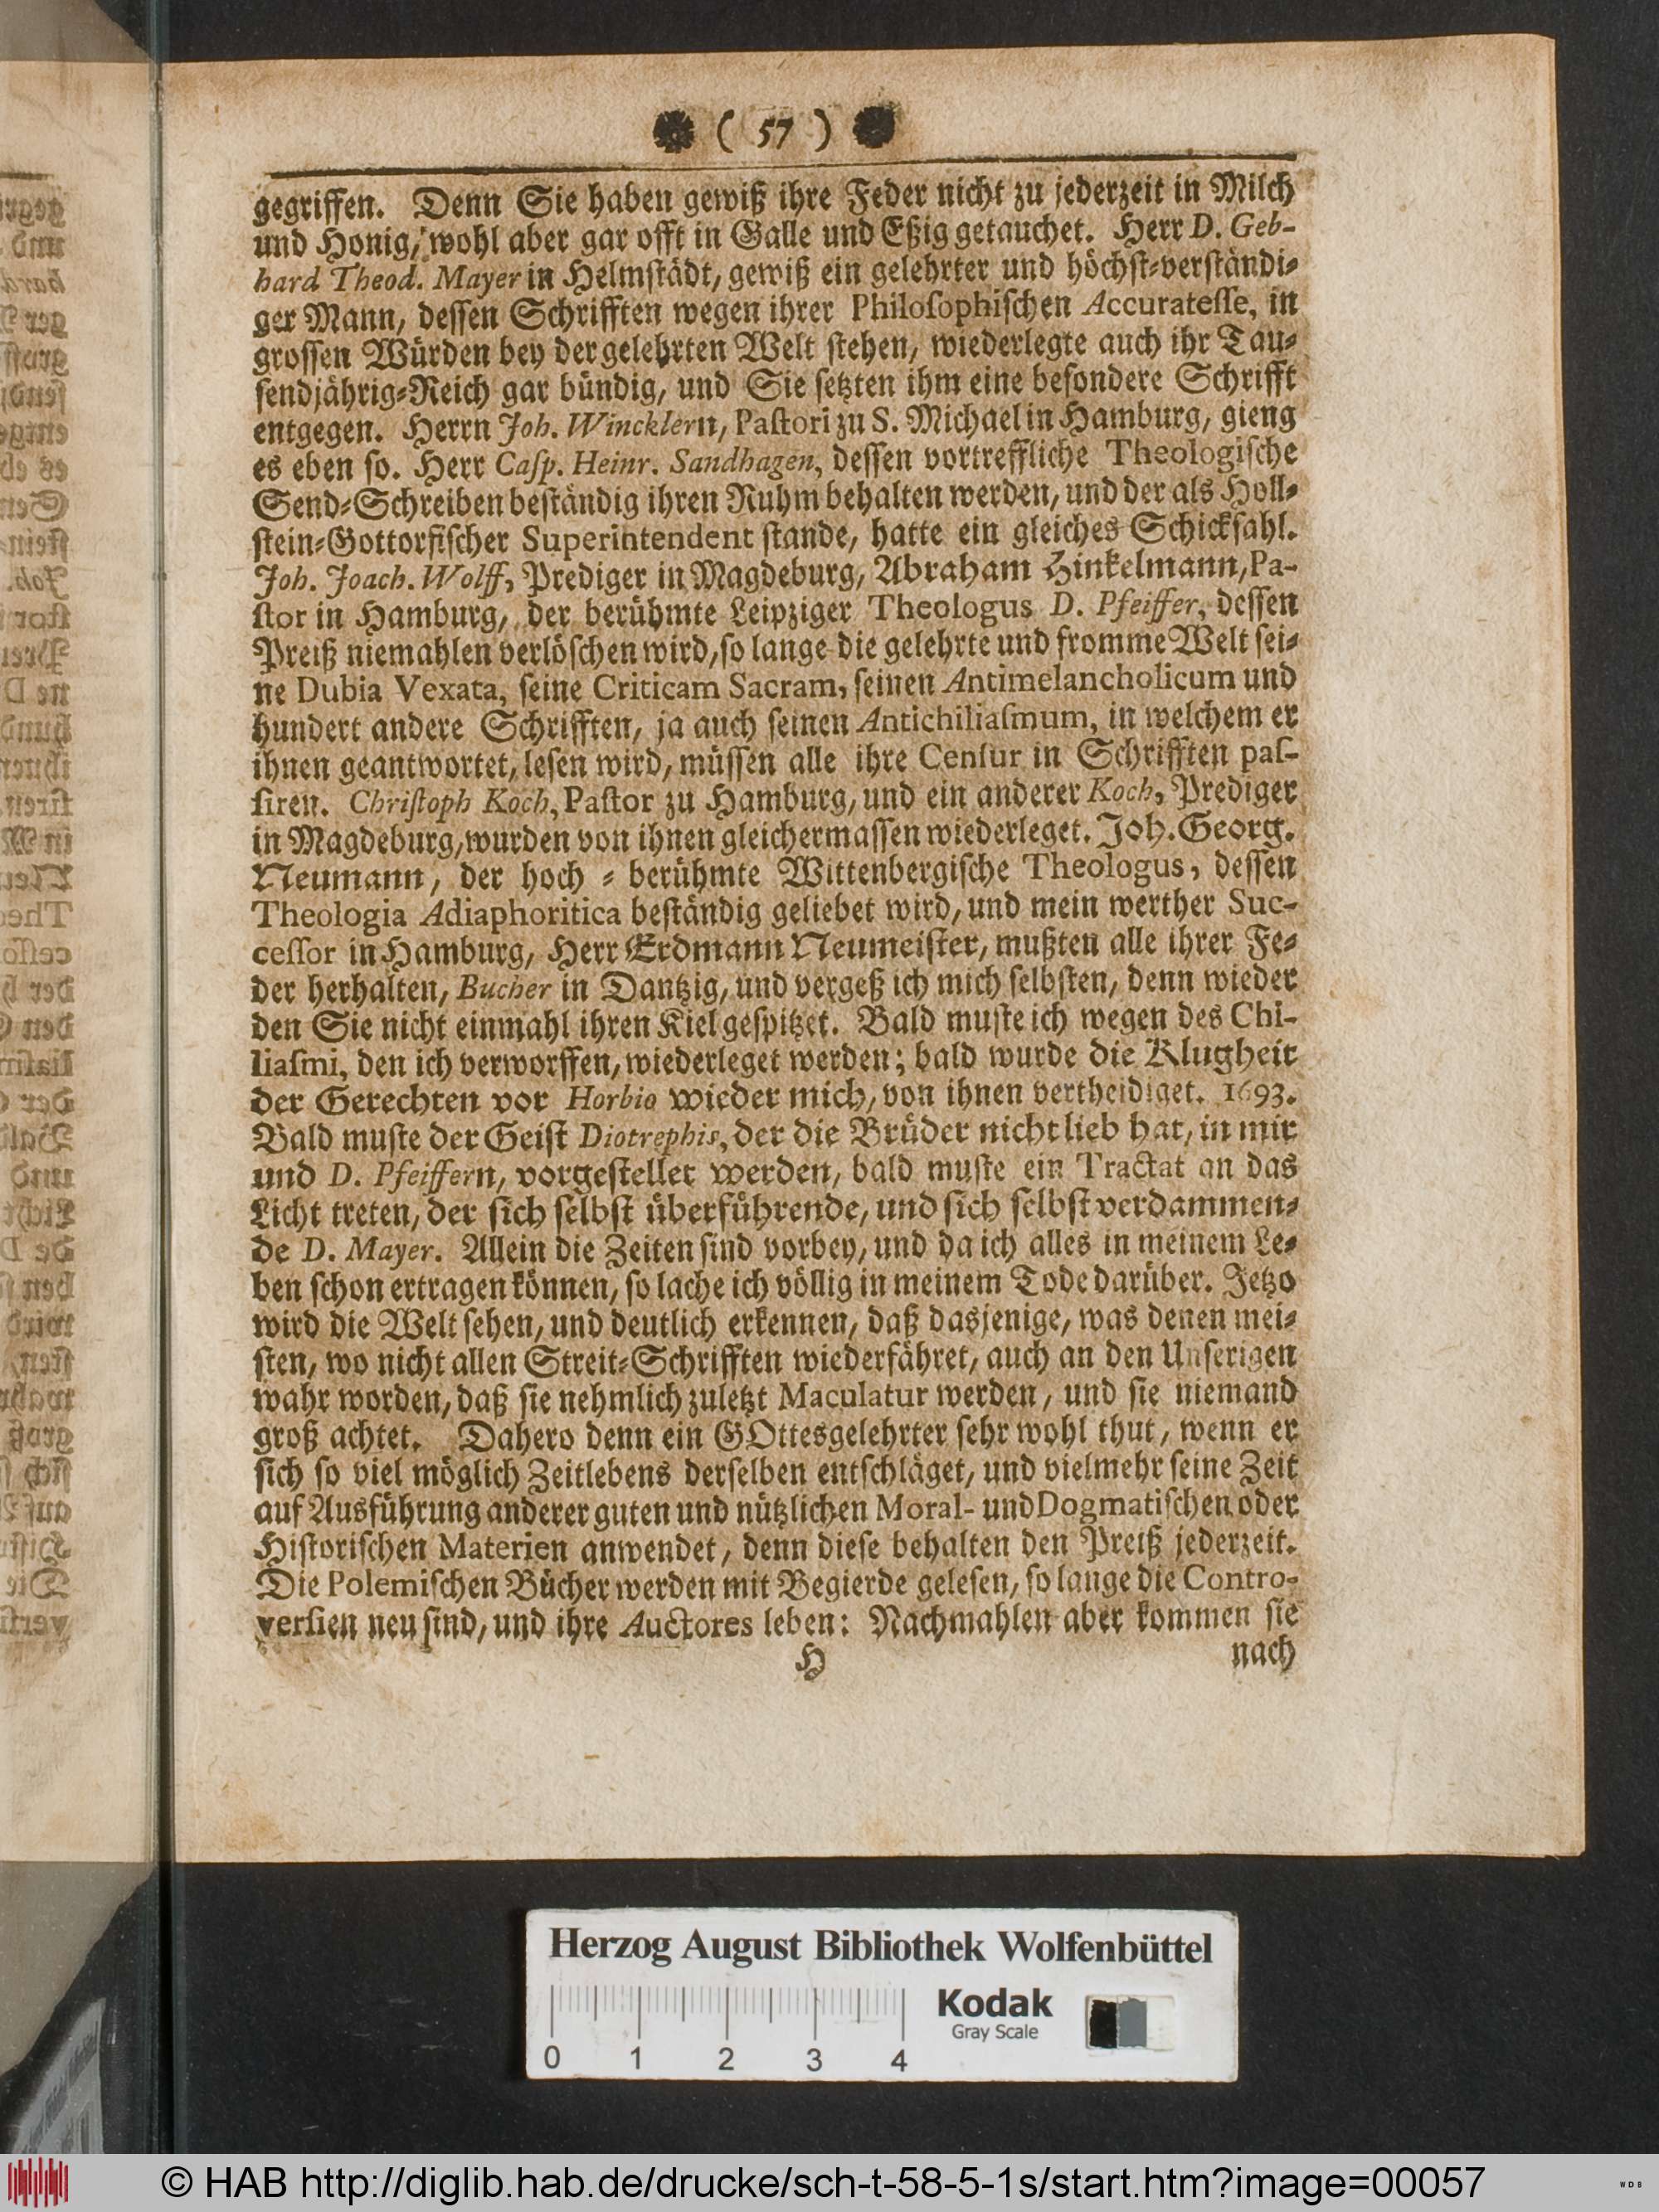 ( 57 )
gegriffen. Denn Sie haben gewiß ihre Feder nicht zu jederzeit in Milch
und Honig, wohl aber gar offt in Galle und Eßig getauchet. Herr D. Geb-
hard Theod. Mayer in Helmstädt, gewiß ein gelehrter und höchst-verständi-
ger Mann, dessen Schrifften wegen ihrer Philosophischen Accuratesse, in
grossen Würden bey der gelehrten Welt stehen, wiederlegte auch ihr Tau-
sendjährig-Reich gar bündig, und Sie setzten ihm eine besondere Schrifft
entgegen. Herrn Joh. Wincklern, Pastori zu S. Michael in Hamburg, gieng
es eben so. Herr Casp. Heinr. Sandhagen, dessen vortreffliche Theologische
Send-Schreiben beständig ihren Ruhm behalten werden, und der als Holl-
stein-Gottorfischer Superintendent stande, hatte ein gleiches Schicksahl.
Joh. Joach. Wolff, Prediger in Magdeburg, Abraham Hinkelmann, Pa-
stor in Hamburg, der berühmte Leipziger Theologus D. Pfeiffer, dessen
Preiß niemahlen verlöschen wird, so lange die gelehrte und fromme Welt sei-
ne Dubia Vexata, seine Criticam Sacram, seinen Antimelancholicum und
hundert andere Schrifften, ja auch seinen Antichiliasmum, in welchem er
ihnen geantwortet, lesen wird, müssen alle ihre Censur in Schrifften pas-
siren. Christoph Koch, Pastor zu Hamburg, und ein anderer Koch, Prediger
in Magdeburg, wurden von ihnen gleichermassen wiederleget. Joh. Georg.
Neumann, der hoch - berühmte Wittenbergische Theologus, dessen
Theologia Adiaphoritica beständig geliebet wird, und mein werther Suc-
cessor in Hamburg, Herr Erdmann Neumeister, mußten alle ihrer Fe-
der herhalten, Bucher in Dantzig, und vergeß ich mich selbsten, denn wieder
den Sie nicht einmahl ihren Kiel gespitzet. Bald muste ich wegen des Chi-
liasmi, den ich verworffen, wiederleget werden; bald wurde die Klugheit
der Gerechten vor Horbio wieder mich, von ihnen vertheidiget. 1693.
Bald muste der Geist Diotrephis, der die Brüder nicht lieb hat, in mir
und D. Pfeiffern, vorgestellet werden, bald muste ein Tractat an das
Licht treten, der sich selbst überführende, und sich selbst verdammen-
de D. Mayer. Allein die Zeiten sind vorbey, und da ich alles in meinem Le-
ben schon ertragen können, so lache ich völlig in meinem Tode darüber. Jetzo
wird die Welt sehen, und deutlich erkennen, daß dasjenige, was denen mei-
sten, wo nicht allen Streit-Schrifften wiederfähret, auch an den Unserigen
wahr worden, daß sie nehmlich zuletzt Maculatur werden, und sie niemand
groß achtet. Dahero denn ein GOttesgelehrter sehr wohl thut, wenn er
sich so viel möglich Zeitlebens derselben entschläget, und vielmehr seine Zeit
auf Ausführung anderer guten und nützlichen Moral- und Dogmatischen oder
Historischen Materien anwendet, denn diese behalten den Preiß jederzeit.
Die Polemischen Bücher werden mit Begierde gelesen, so lange die Contro-
versien neu sind, und ihre Auctores leben: Nachmahlen aber kommen sie
H nach
Herzog August Bibliothek Wolfenbüttel
Kodak
Gray Scale
0 1 2 3 4
© HAB http://diglib.hab.de/drucke/sch-t-58-5-1s/start.htm?image=00057
WDB